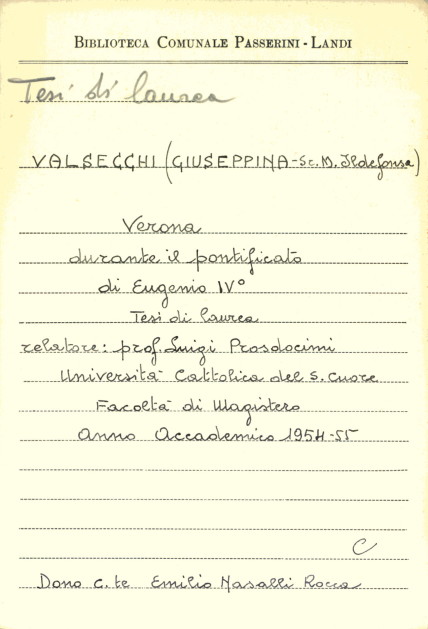 BIBLIOTECA COMUNALE PASSERINI-LANDI
Tesi di laurea
VALSECCHI (GIUSEPPINA-Sr. M. Ildefonsa)
Verona
durante il pontificato
di Eugenio IV°
Tesi di laurea
relatore: prof. Luigi Prosdocimi
Università Cattolica del S. Cuore
Facoltà di Magistero
Anno Accademico 1954-55
C
Dono c.te Emilio Nasalli Rocca